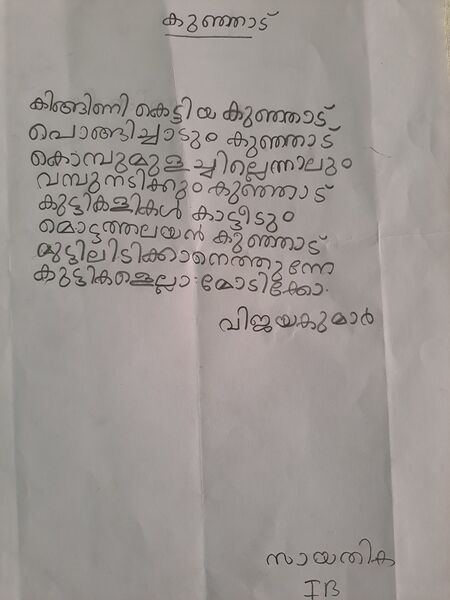 കുഞ്ഞാട്
കിങ്ങിണി കെട്ടിയ കുഞ്ഞാട്
പൊങ്ങിച്ചാടും കുഞ്ഞാട്
കൊമ്പുമുള ച്ചില്ലെന്നാലും
വമ്പുനടിക്കും കുഞ്ഞാട്
കുട്ടികളികൾ കാട്ടീടും
മൊട്ടത്തലയൻ കുഞ്ഞാട്
മുട്ടിലിടിക്കാനെത്തുന്നേ
കുട്ടികളെല്ലാമോടിക്കോ.
വിജയകുമാർ
സായതിക
IB